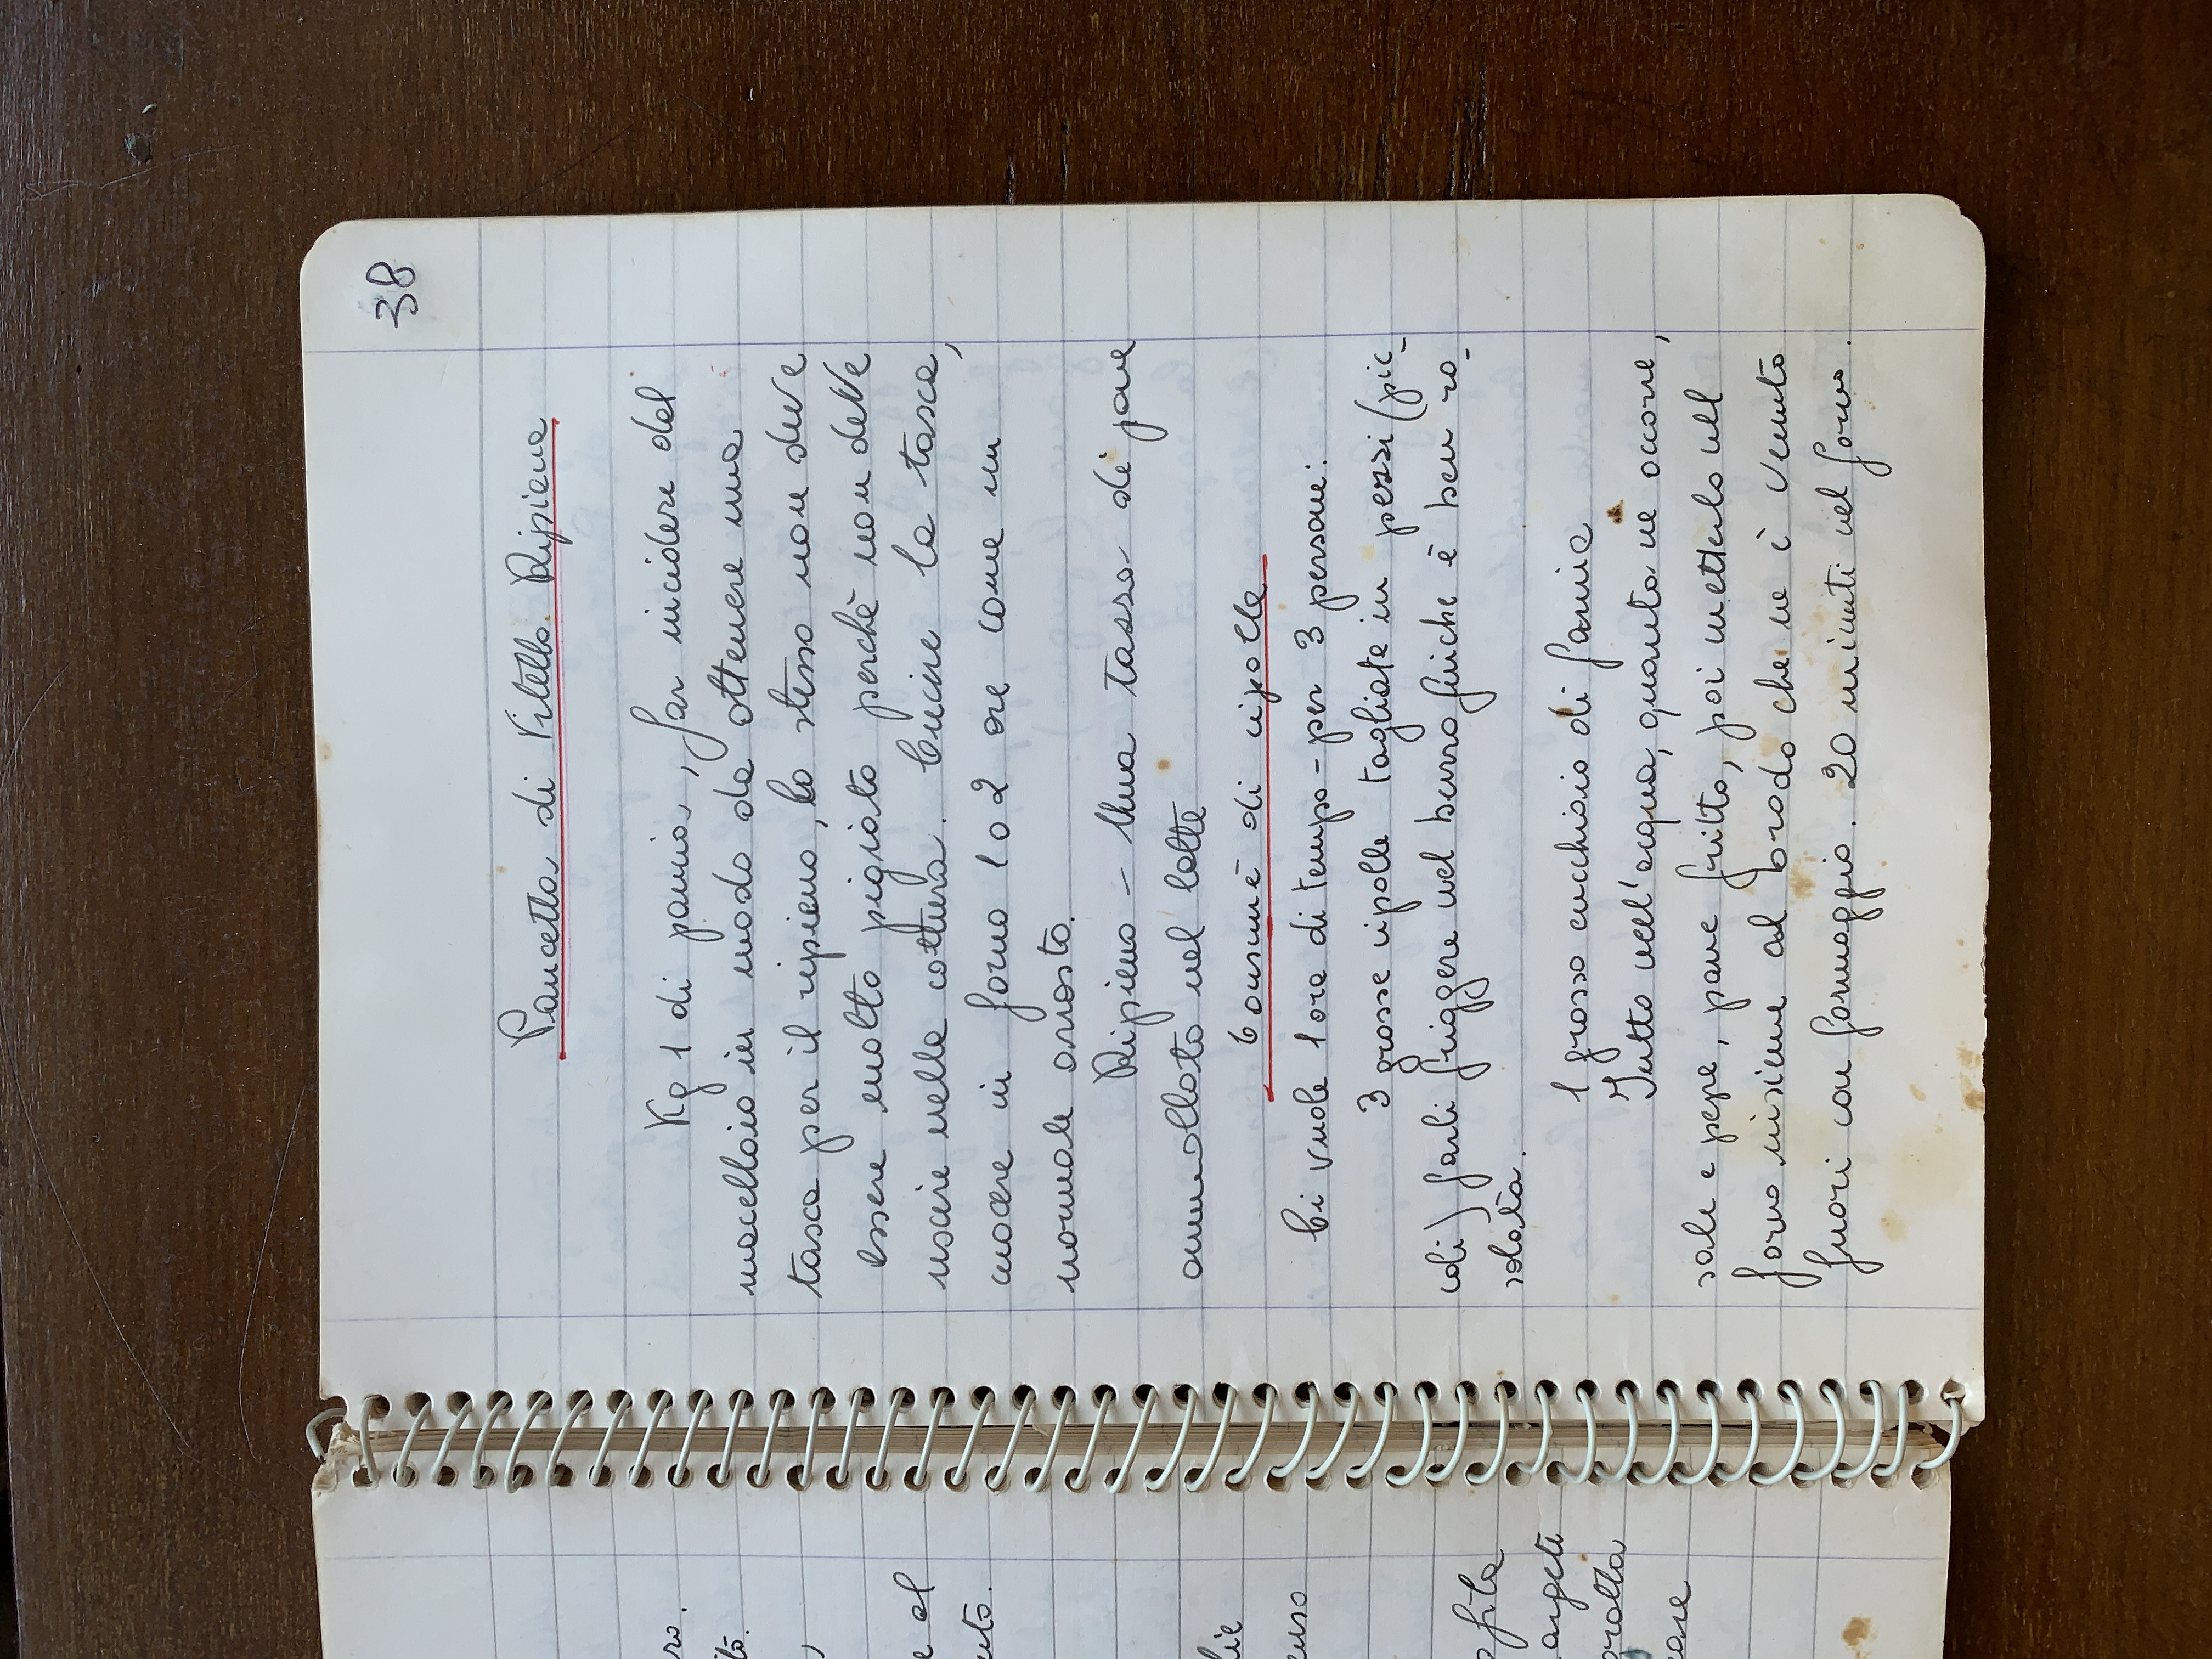 38
Pancetta di Vitello Ripiena
Kg 1 di pancia, far incidere dal
macellaio in modo da ottenere una
tasca per il ripieno, lo stesso non deve
essere molto pigiato perchè non deve
uscire nella cottura. Cucire la tasca,
cuocere in forno 1 o 2 ore come un
normale arrosto.
Ripieno - Una tazza di pane
ammollato nel latte
Consumè di cipolle
Ci vuole 1 ora di tempo - per 3 persone:
3 grosse cipolle tagliate in pezzi (pic-
coli) farli friggere nel burro finche è ben ro-
solata.
1 grosso cucchiaio di farina
Tutto nell'acqua, quanta ne occorre,
sale e pepe, pane fritto, poi metterlo nel
forno insieme al brodo che ne è venuto
fuori con formaggio. 20 minuti nel forno.
ro.
to.
,
e al
uto.
lie
enso
o fila
argeti
grotta
care